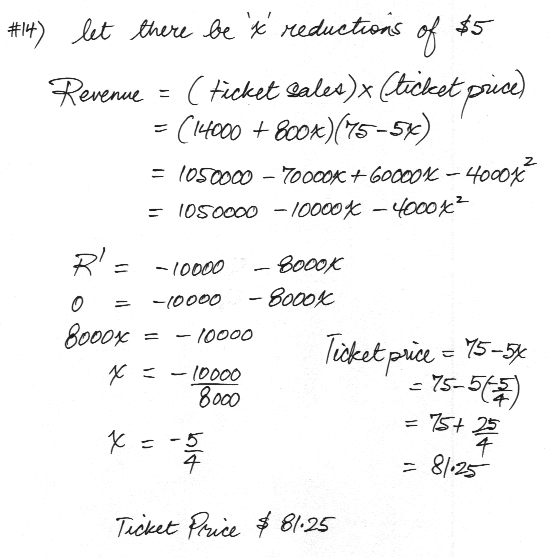 #14) let there be 'x' reductions of $5
Revenue = (ticket sales) x (ticket price)
= (14000 + 800x)(75-5x)
= 1050000 - 70000x + 60000x - 4000x²
= 1050000 - 10000x - 4000x²
R' = -10000 - 8000x
0 = -10000 - 8000x
8000x = -10000
x = -10000/8000
x = -5/4
Ticket price = 75-5x
= 75-5(-5/4)
= 75+ 25/4
= 81.25
Ticket Price $ 81.25